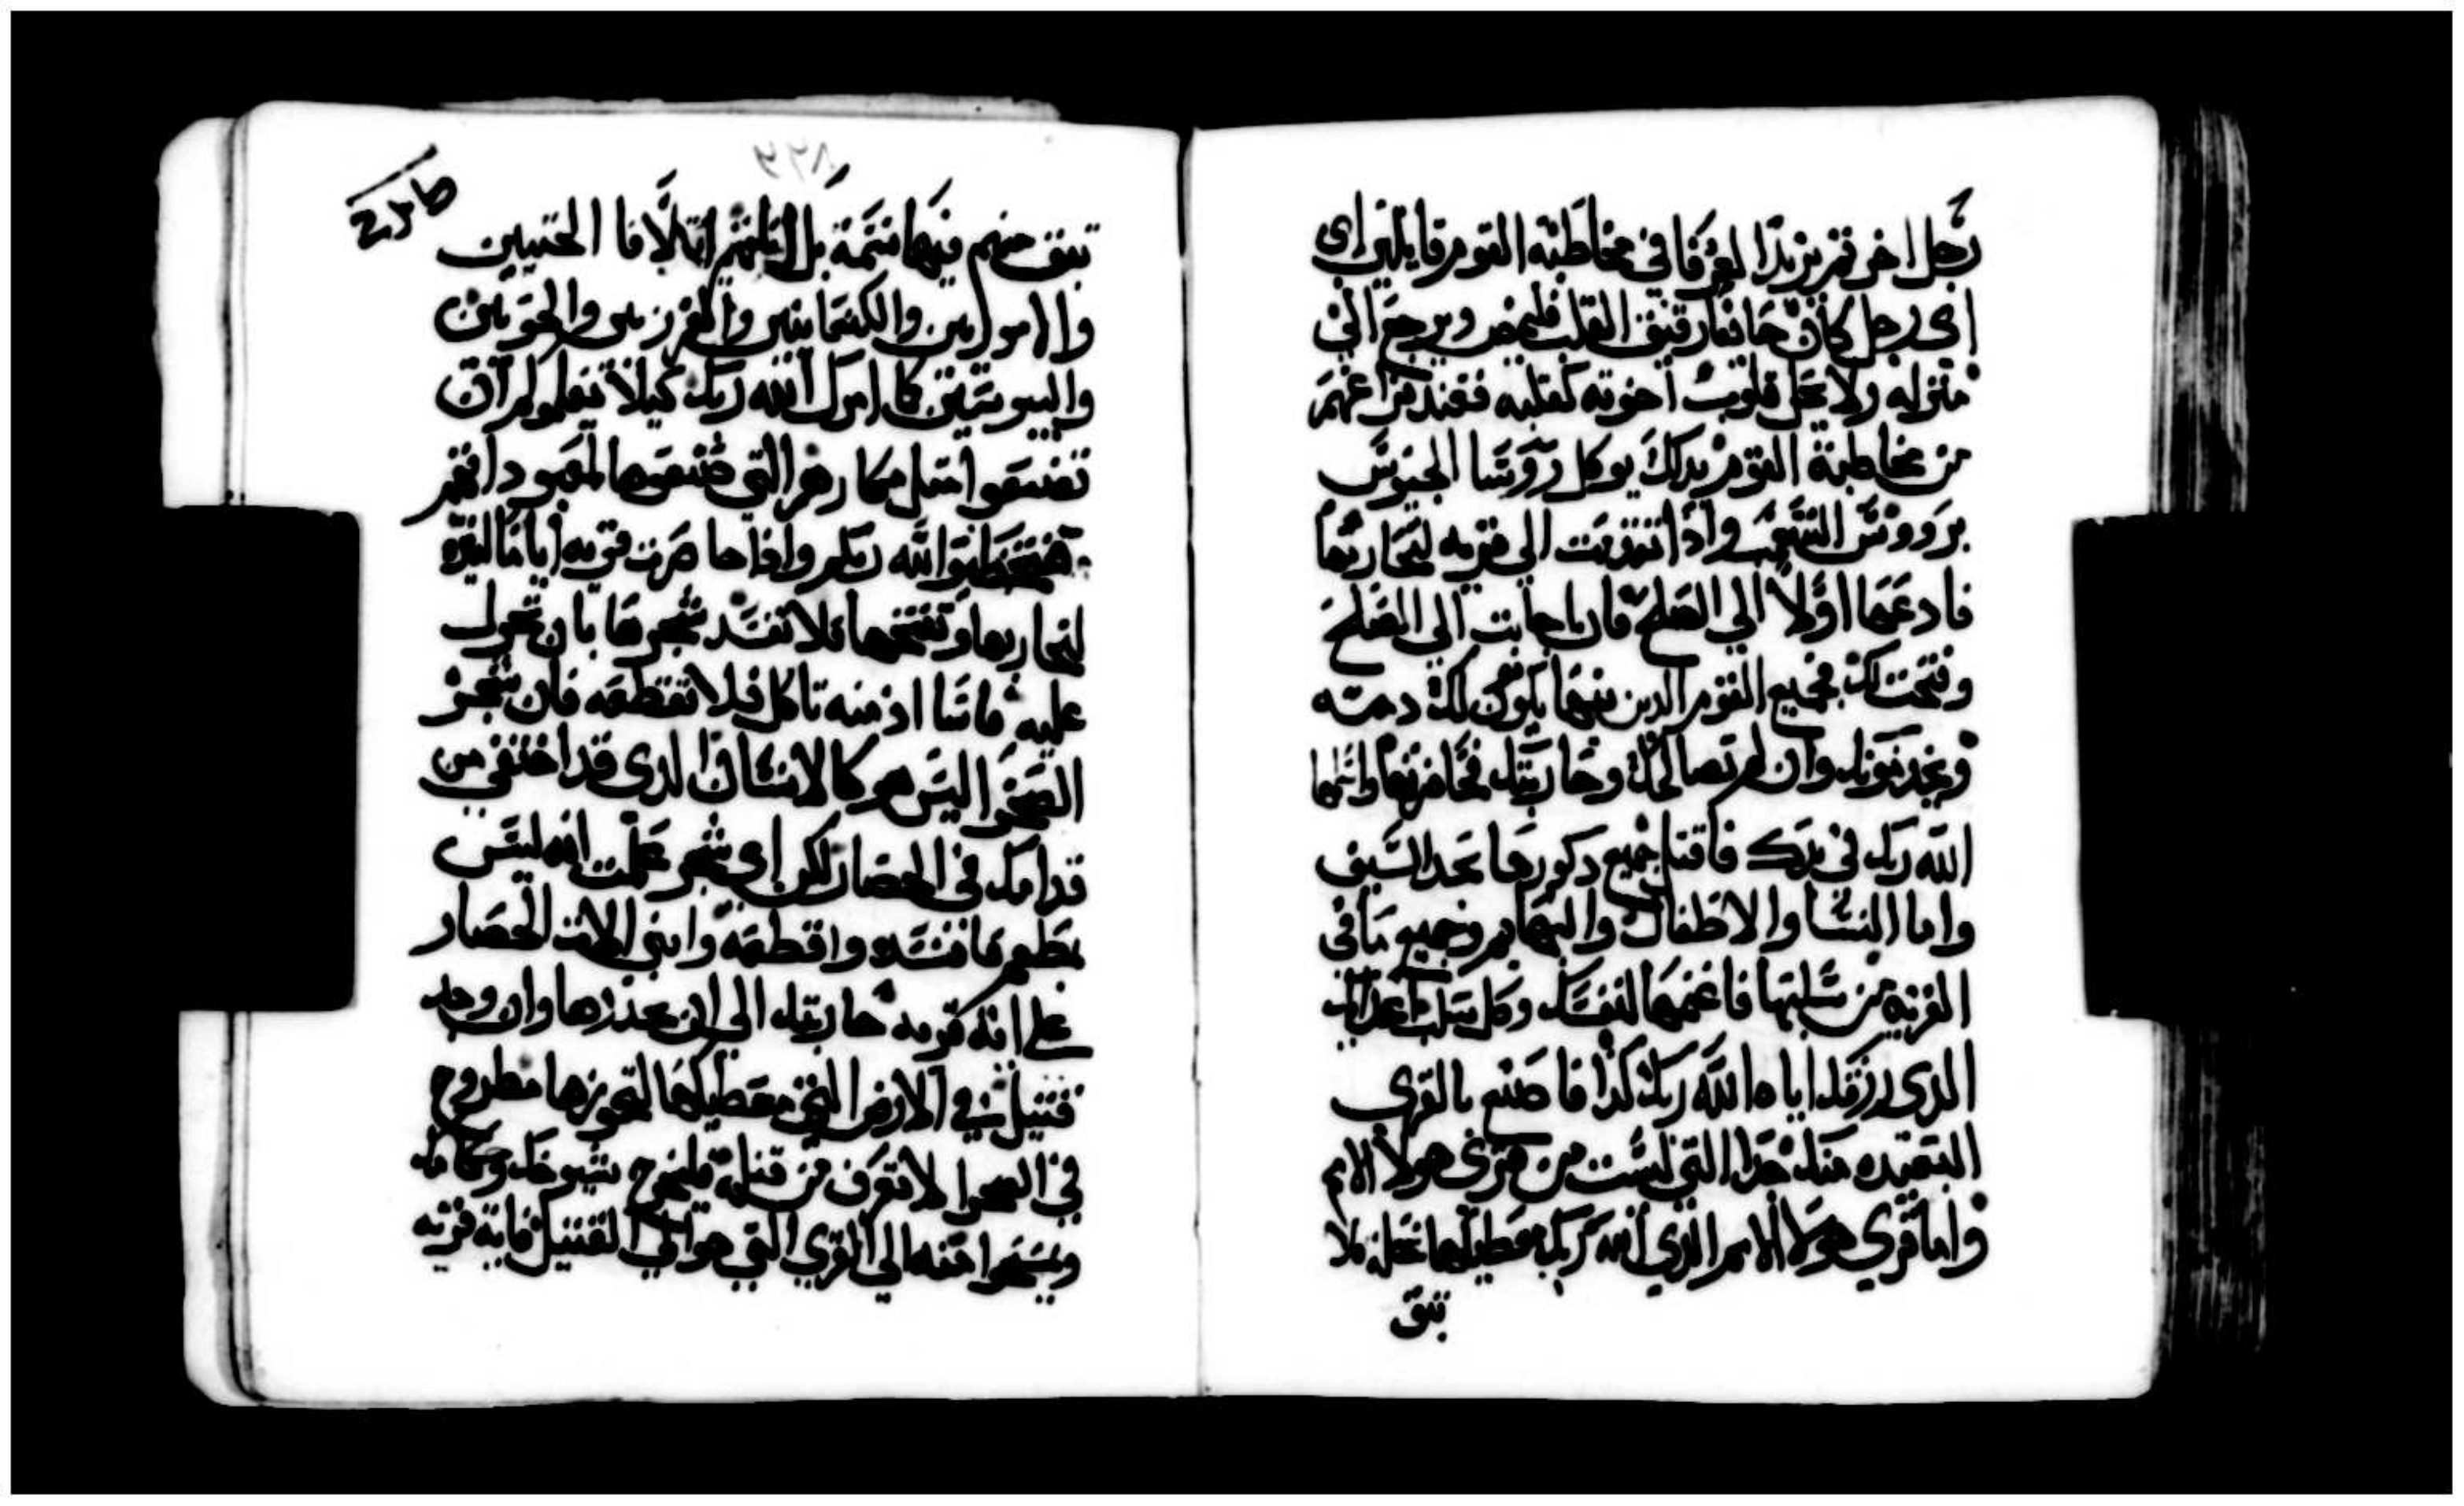 رجل اخر ثم يزيدا العرفا في مخاطبة القوم قايلين اي
اي رجل كان خايفا رقيق القلب فليمض ويرجع الي
منزله ولا يحل قلوب اخوته كقلبه فعند فراغهم
من مخاطبة القوم بذلك يوكل روسا الجيوش
بروس الشعب واذا تقربت الي قريه لتحاربها
فادعها اولا الي الصلح فان اجابت الي الصلح
وفتحت لك فجميع القوم الدين فيها يكون لك دمه
ويخدمونك وان لم تصالحك وحاربتك فحاصرها واسلمها
الله ربك في يدك فاقتل جميع دكورها بحد السيف
واما النسا والاطفال والبهايم وجميع ما في
القريه من سلبها فاغنمها لنفسك وكل سلب اعدايك
الدي رزقك اياه الله ربك كدا فاصنع بالقري
البعيده منك جدا التي ليست من قري هولا الامم
واما قري هولا الامم الذي الله ربك معطيكها نحله فلا
تبق
تبق منهم فيها نسمة بل اتلفهم اتلافا الحتيين
والاموريين والكنعانيين والفرزيين والحويين
واليبوسيين كما امرك الله ربك كيلا يعلموكم ان
تصنعوا مثل مكارههم التي صنعوها لمعبوداتهم
فتخطوا الله ربكم واذا حاصرت قريه اياما كثيره
لتحاربها وتفتحها فلا تفسد شجرها بان تحول
عليه فاسا اذ منه تاكل فلا تقطعه فان شجر
الصحرا ليس هو كالانسان الدي قد اختفي من
قدامك في الحصار لكن اي شجر علمت انه ليس
بمطعم فافسده واقطعه وابني الات الحصار
علي اي قريه حاربتك الي ان تحدرها وان وجد
قتيل في الارض التي معطيكها لتحوزها مطروح
في الصحرا لا تعرف من قتله فليخرج شيوخك وحكامك
ويمسحوا منه الي القري التي حوالي القتيل فايه قريه